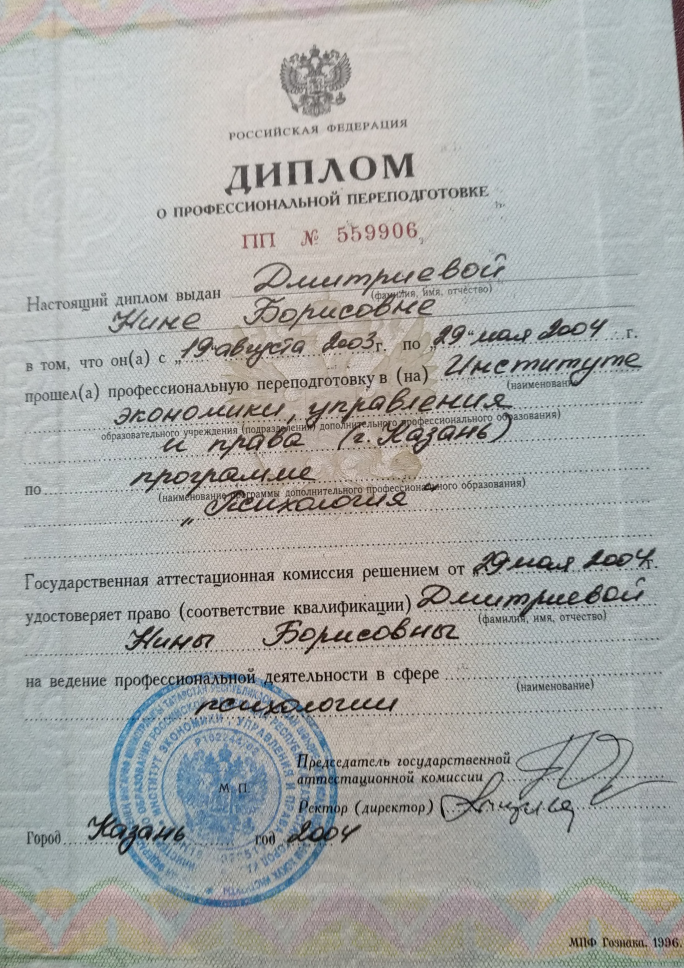 РОССИЙСКАЯ ФЕДЕРАЦИЯ
ДИПЛОМ
О ПРОФЕССИОНАЛЬНОЙ ПЕРЕПОДГОТОВКЕ
ПП № 559906
Настоящий диплом выдан Дмитриевой
(фамилия, имя, отчество)
Нине Борисовне
в том, что он(а) с „19“ августа 2003 г. по „29“ мая 2004 г.
прошел(а) профессиональную переподготовку в (на) Институте
(наименование
экономики, управления
образовательного учреждения (подразделения) дополнительного профессионального образования)
и права (г. Казань)
по программе
(наименование программы дополнительного профессионального образования)
„Психология“
Государственная аттестационная комиссия решением от „29 мая 2004 г.
удостоверяет право (соответствие квалификации) Дмитриевой
(фамилия, имя, отчество)
Нины Борисовны
на ведение профессиональной деятельности в сфере
(наименование)
психологии
Председатель государственной
аттестационной комиссии
М П
Ректор (директор)
Город Казань год 2004
МПФ Гознака. 1996.